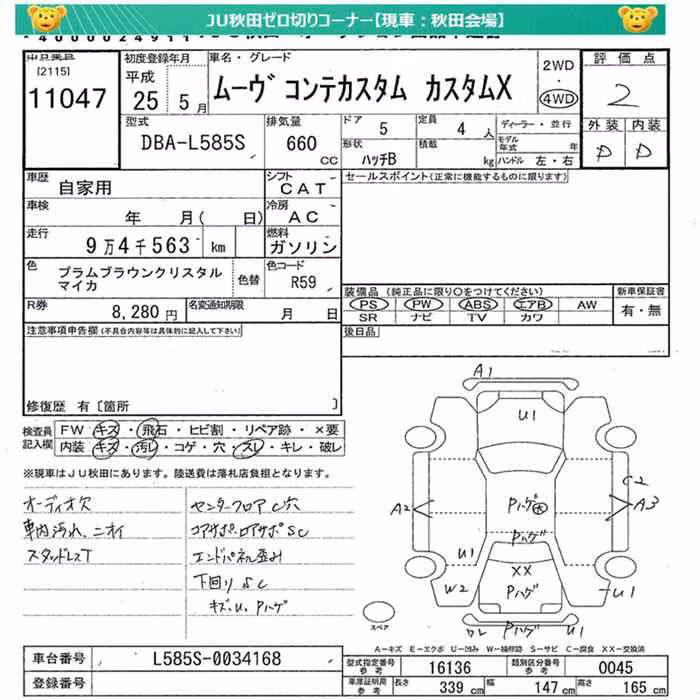 JU秋田ゼロ切りコーナー【現車：秋田会場】
[2115]
11047
初度登録年月
平成
25 5月
車名・グレード
ムーヴ コンテカスタム カスタムX
2WD
・
4WD
評価点
2
外装 内装
D D
型式
DBA-L585S
排気量
660
CC
ドア 5
定員 4 人
ディーラー・並行
形状
ハッチB
積載 kg
モデル年式 年
ハンドル 左・右
車歴
自家用
シフト
CAT
セールスポイント(正常に機能するものに限ります)
車検
年 月( 日)
冷房
AC
走行
9万4千563 km
燃料
ガソリン
色
プラムブラウンクリスタル
マイカ
色替
色コード
R59
装備品 (純正品に限り○をつけてください)
PS PW ABS エアB AW
SR ナビ TV カワ
新車保証書
有・無
R券
8,280 円
名変通知期限
月 日
後日品
注意事項申告欄(不具合内容等は具体的に記入して下さい)
修復歴 有〔箇所 〕
検査員
記入欄
FW キズ・飛石・ヒビ割・リペア跡・×要
内装 キズ・汚レ・コゲ・穴・スレ・キレ・破レ
※現車はJU秋田にあります。陸送費は落札店負担となります。
オーディオ欠
車内汚れ、ニオイ
スタッドレスT
センターフロアC穴
コアサポ、ロアサポSC
エンドパネル歪み
下回りSC
キズ、U、Pハゲ
A1
U1
A2
Pハゲ大
C2
A3
Pハゲ
U1
XX
W2
Pハゲ
U1
Pハゲ
U1
スペア
A－キズ E－エクボ U－凹み W－補修跡 S－サビ C－腐食 XX－交換済
車台番号
L585S-0034168
登録番号
型式指定番号
参考
16136
類別区分番号
参考
0045
車庫証明用
参考
長さ 339 cm
幅 147 cm
高さ 165 cm